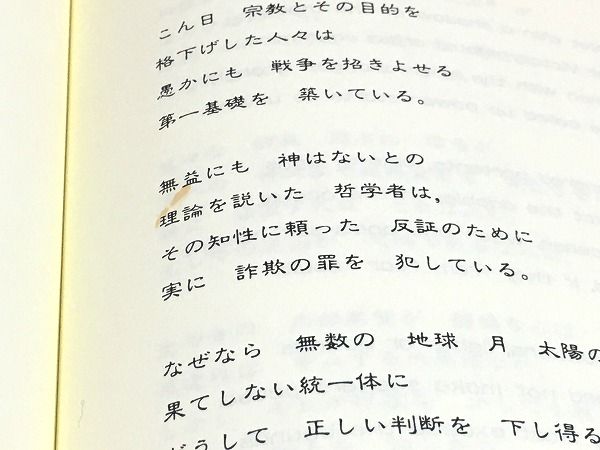 こん日　宗教とその目的を
格下げした人々は
愚かにも　戦争を招きよせる
第一基礎を　築いている。
無益にも　神はないとの
理論を説いた　哲学者は，
その知性に頼った　反証のために
実に　詐欺の罪を　犯している。
なぜなら　無数の　地球　月　太陽の
果てしない統一体に
どうして　正しい判断を　下し得る